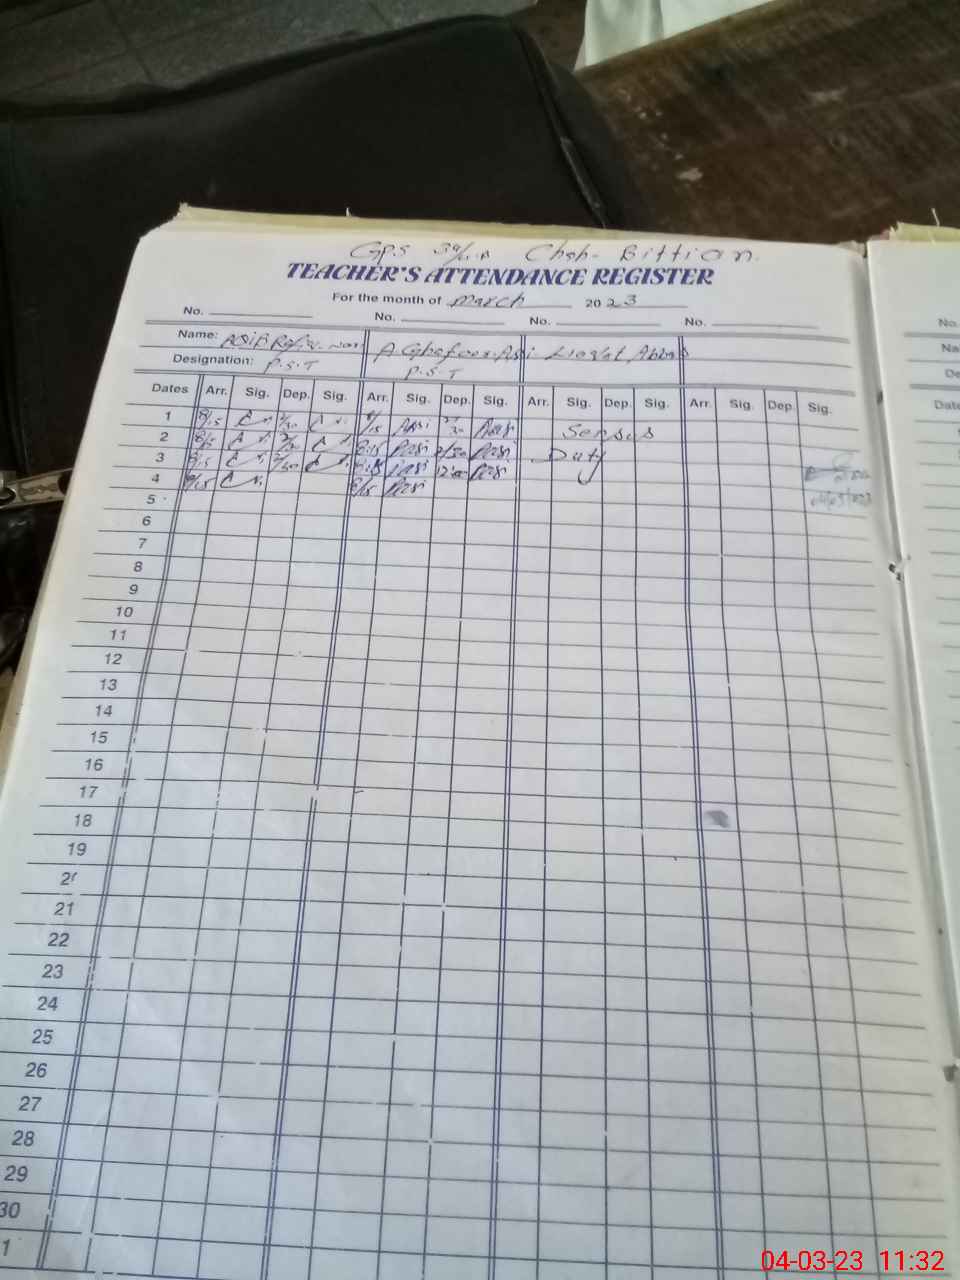 GPS 39/4-R Chah- Bittian.
TEACHER'S ATTENDANCE REGISTER
For the month of March 2023
No. No. No. No.
Name: Asia A Ghafoor Asi Liaqat Abbas
Designation: P.S.T P.S.T
Dates Arr. Sig. Dep. Sig. Arr. Sig. Dep. Sig. Arr. Sig. Dep. Sig. Arr. Sig. Dep. Sig.
1 8/15 2/30 8/15 Assi 2/30 Assi Sensus
2 8/15 2/30 8:15 Assi 2/30 Assi Duty
3 8/15 8:15 Assi 12:00 Assi
4 8/15 8/15 Assi
5
6
7
8
9
10
11
12
13
14
15
16
17
18
19
20
21
22
23
24
25
26
27
28
29
30
1
No.
Na
De
Date
04-03-23 11:32